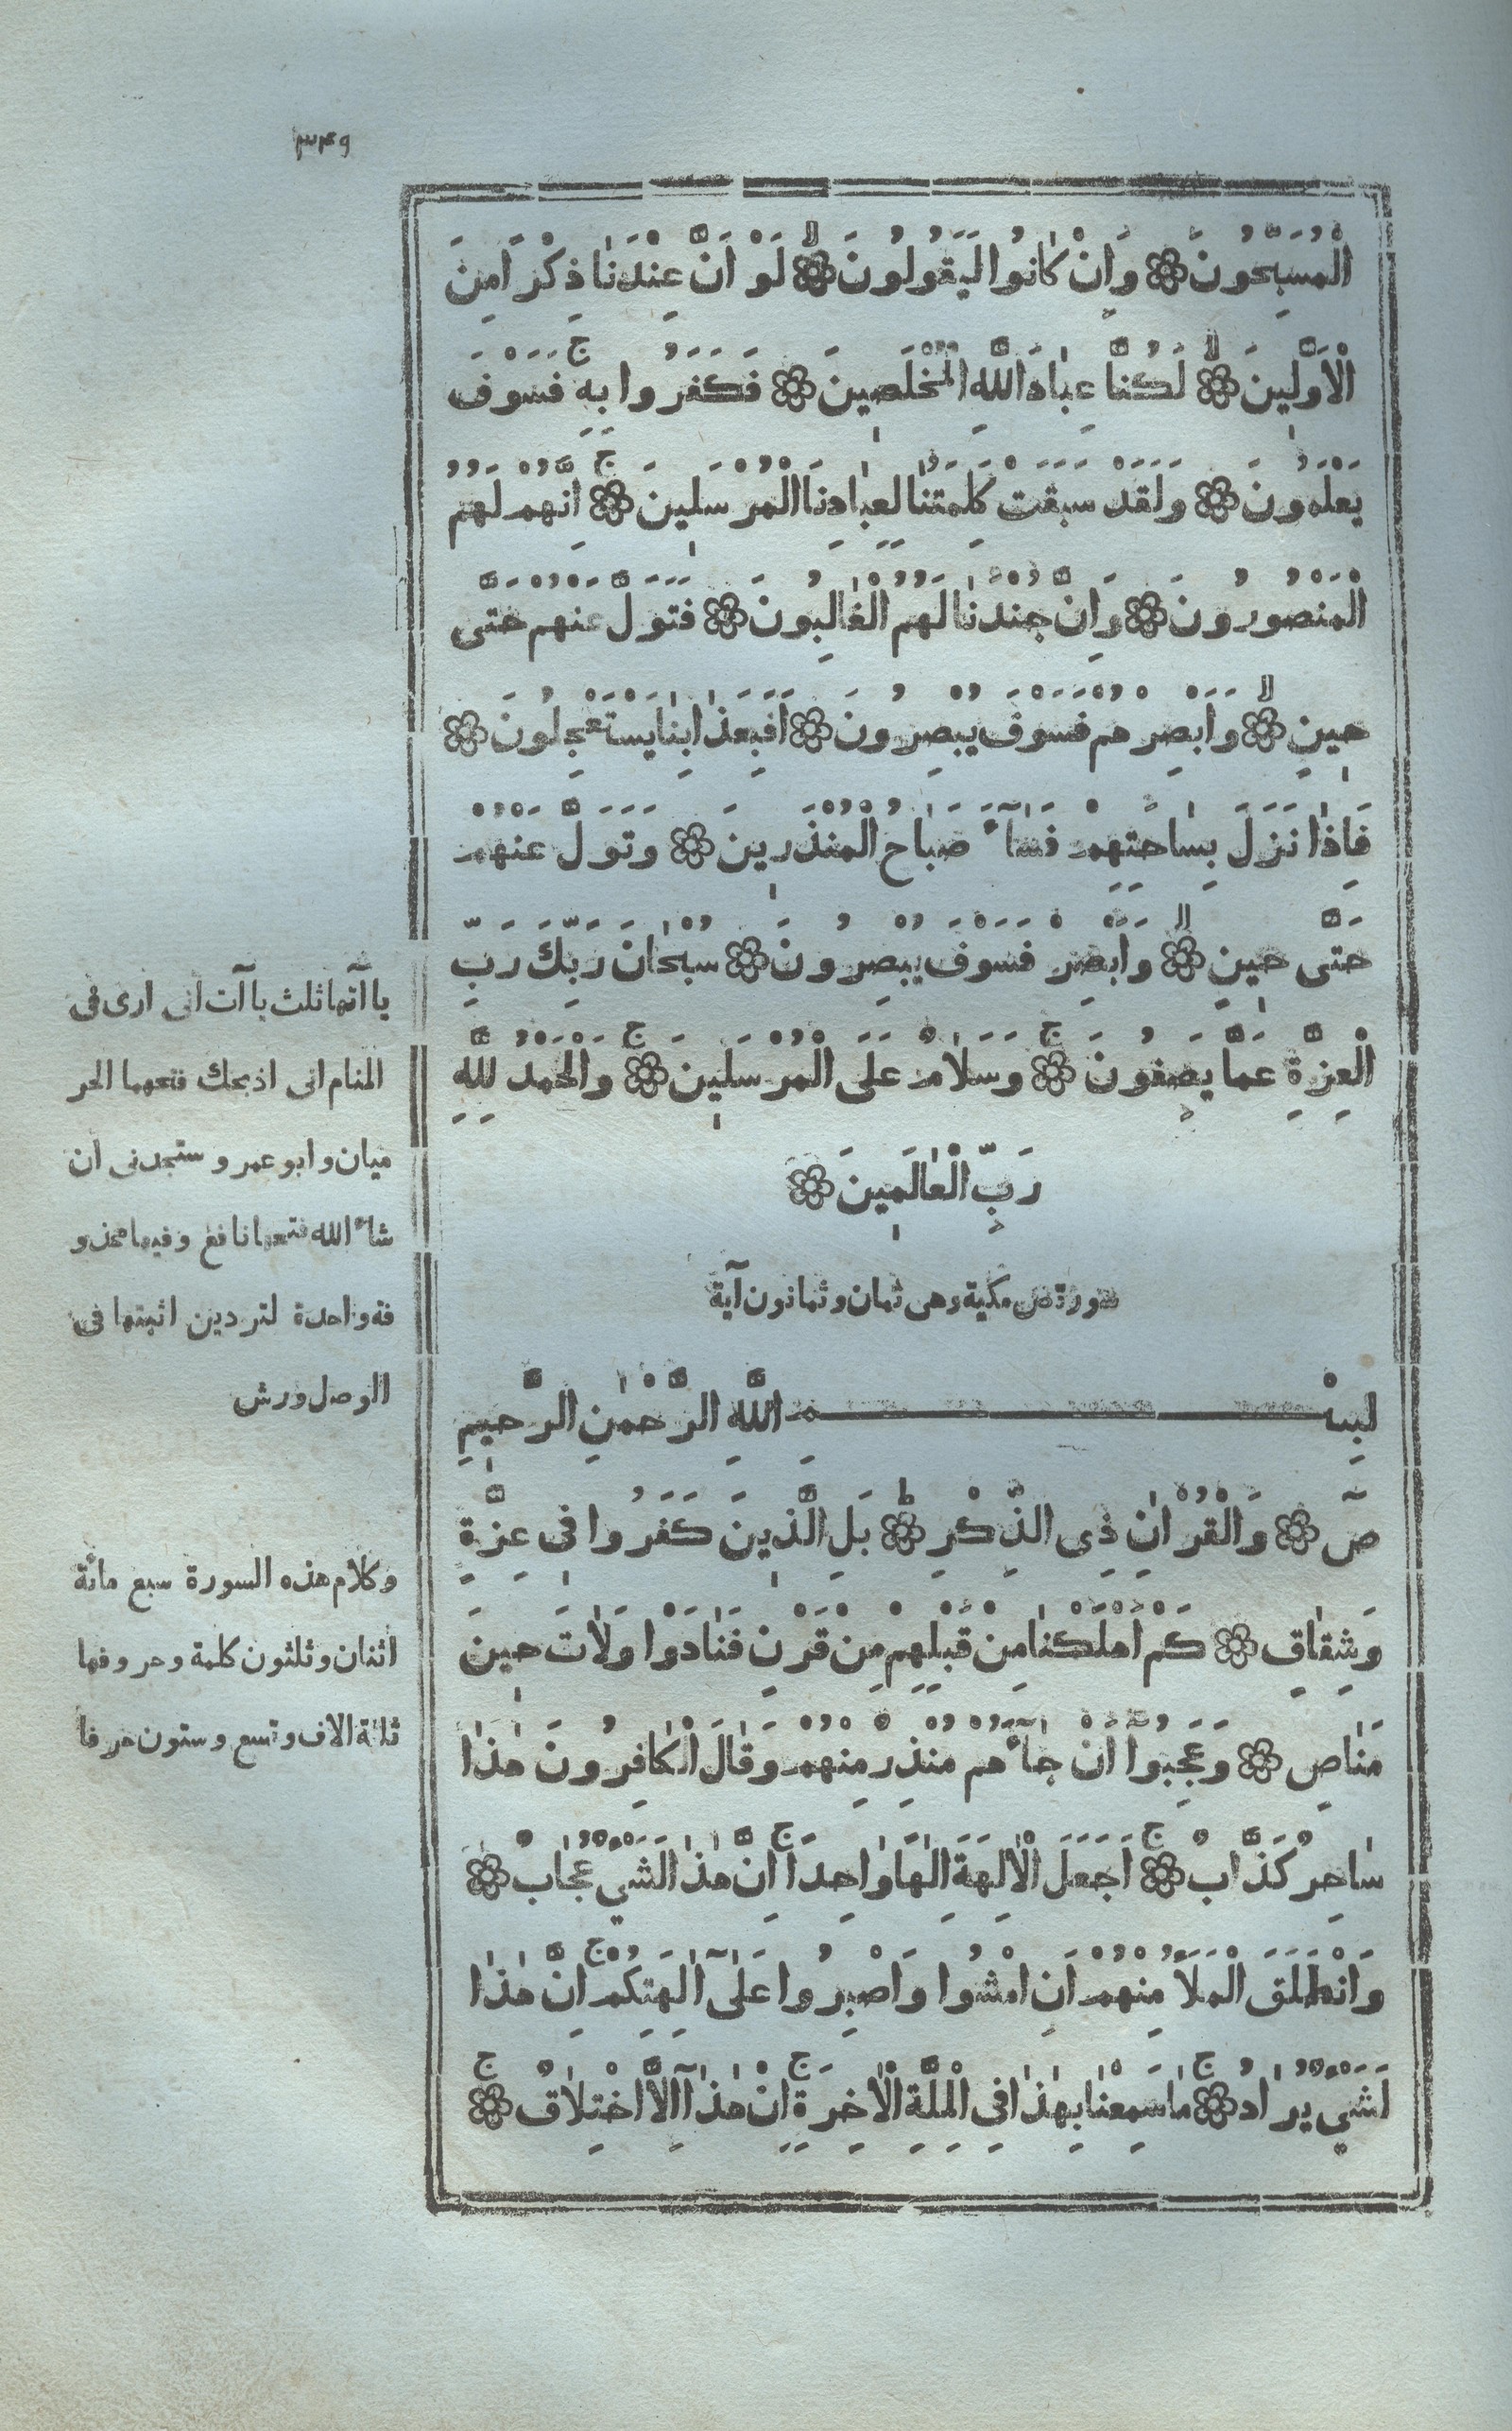 ٣٤٩
الْمُسَبِّحُونَ ۝ وَاِنْ كَانُوا لَيَقُولُونَ ۝ لَوْ اَنَّ عِنْدَنَا ذِكْرًا مِنَ
الْاَوَّلِينَ ۝ لَكُنَّا عِبَادَ اللَّهِ الْمُخْلَصِينَ ۝ فَكَفَرُوا بِهِ ج فَسَوْفَ
يَعْلَمُونَ ۝ وَلَقَدْ سَبَقَتْ كَلِمَتُنَا لِعِبَادِنَا الْمُرْسَلِينَ ج ۝ اِنَّهُمْ لَهُمُ
الْمَنْصُورُونَ ۝ وَاِنَّ جُنْدَنَا لَهُمُ الْغَالِبُونَ ۝ فَتَوَلَّ عَنْهُمْ حَتَّى
حِينٍ ۝ وَاَبْصِرْهُمْ فَسَوْفَ يُبْصِرُونَ ۝ اَفَبِعَذَابِنَا يَسْتَعْجِلُونَ ۝
فَاِذَا نَزَلَ بِسَاحَتِهِمْ فَسَآءَ صَبَاحُ الْمُنْذَرِينَ ۝ وَتَوَلَّ عَنْهُمْ
حَتَّى حِينٍ ۝ وَاَبْصِرْ فَسَوْفَ يُبْصِرُونَ ۝ سُبْحَانَ رَبِّكَ رَبِّ
الْعِزَّةِ عَمَّا يَصِفُونَ ج ۝ وَسَلَامٌ عَلَى الْمُرْسَلِينَ ج ۝ وَالْحَمْدُ لِلَّهِ
رَبِّ الْعَالَمِينَ ۝
سورة ص مكية وهى ثمان وثمانون آية
بِسْمِ اللَّهِ الرَّحْمٰنِ الرَّحِيمِ
صٓ ۝ وَالْقُرْاٰنِ ذِى الذِّكْرِ ط ۝ بَلِ الَّذِينَ كَفَرُوا فِى عِزَّةٍ
وَشِقَاقٍ ۝ كَمْ اَهْلَكْنَا مِنْ قَبْلِهِمْ مِنْ قَرْنٍ فَنَادَوْا وَلَاتَ حِينَ
مَنَاصٍ ۝ وَعَجِبُوآ اَنْ جَآءَهُمْ مُنْذِرٌ مِنْهُمْ وَقَالَ الْكَافِرُونَ هٰذَا
سَاحِرٌ كَذَّابٌ ج ۝ اَجَعَلَ الْاٰلِهَةَ اِلٰهًا وَاحِدًا ج اِنَّ هٰذَا لَشَيْءٌ عُجَابٌ ۝
وَانْطَلَقَ الْمَلَأُ مِنْهُمْ اَنِ امْشُوا وَاصْبِرُوا عَلٰٓى اٰلِهَتِكُمْ ج اِنَّ هٰذَا
لَشَيْءٌ يُرَادُ ج ۝ مَا سَمِعْنَا بِهٰذَا فِى الْمِلَّةِ الْاٰخِرَةِ ج اِنْ هٰذَآ اِلَّا اخْتِلَاقٌ ج ۝
يا آتها ثلث يا آت انى ارى فى
المنام انى اذبحك فتحهما الحر
ميان وابو عمرو ستجدنى ان
شاء الله فتحها نافع وفيها محذو
فة واحدة لتردين اثبتها فى
الوصل ورش
وكلام هذه السورة سبع مائة
اثنان وثلثون كلمة وحروفها
ثلثة الاف وتسع وستون حرفا